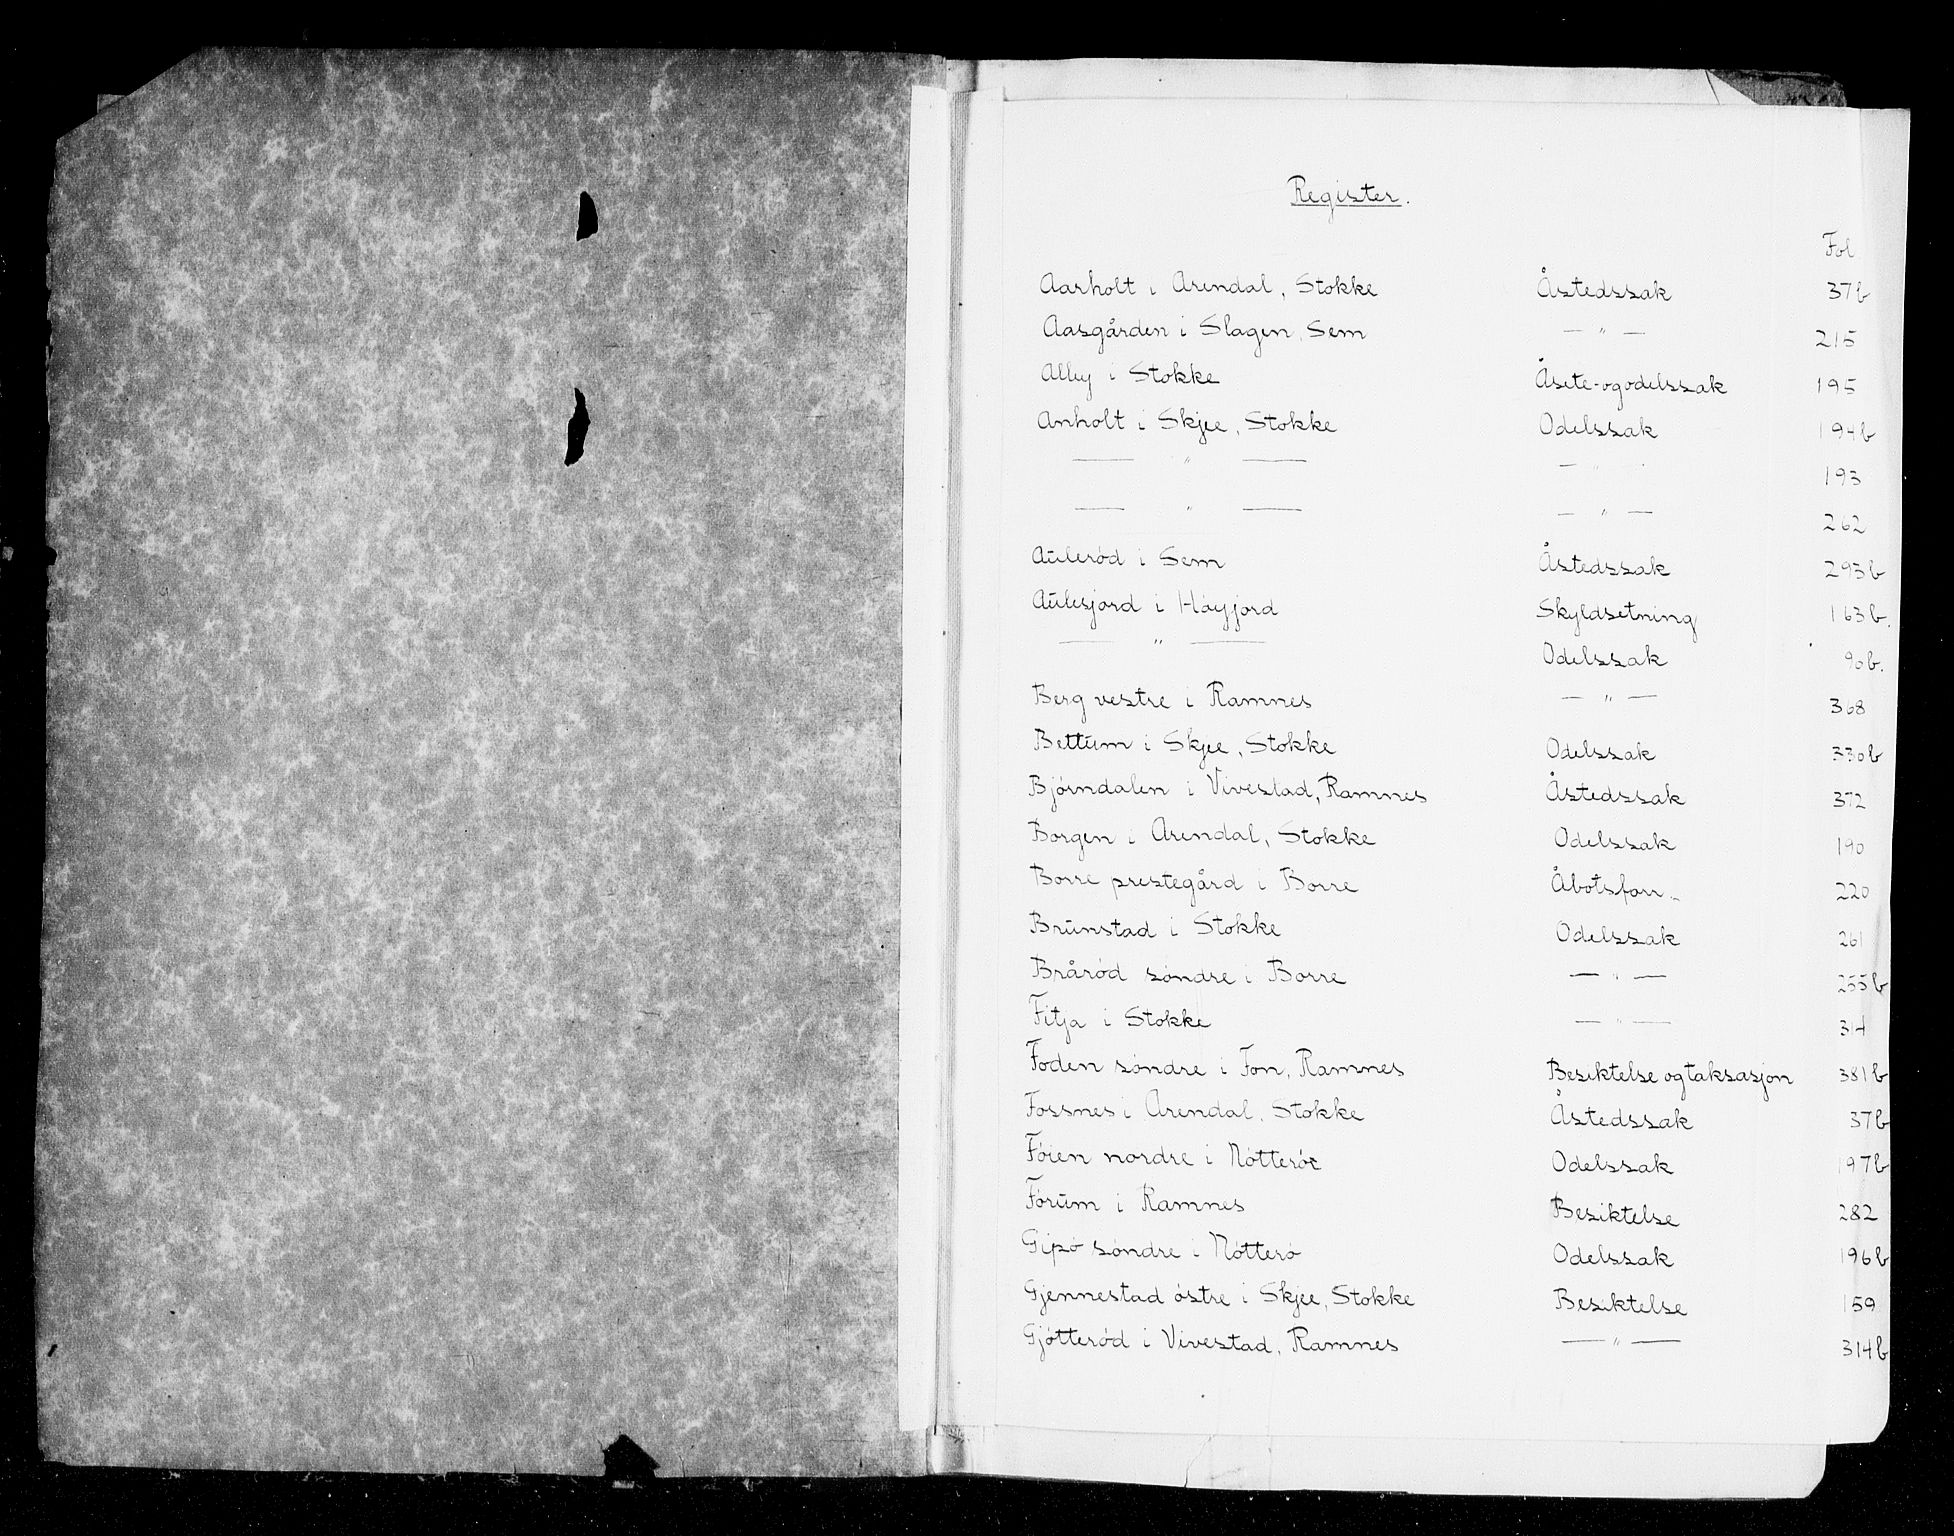 Register.
Fol
Aarholt i Arendal, Stokke Åstedssak 37b
Aasgården i Slagen, Sem — " — 215
Alby i Stokke Åsete-ogodelssak 195
Anholt i Skjee, Stokke Odelssak 194b
— " — — " — 193
— " — — " — 262
Aulerød i Sem Åstedssak 293b
Aulesjord i Høyjord Skyldsetning 163b.
— " — Odelssak 90b.
Berg vestre i Ramnes — " — 368
Bettum i Skjee, Stokke Odelssak 330b
Bjørndalen i Vivestad, Ramnes Åstedssak 372
Borgen i Arendal, Stokke Odelssak 190
Borre prestegård i Borre Åbotsforr._ 220
Brunstad i Stokke Odelssak 261
Brårød søndre i Borre — " — 255b
Fitja i Stokke — " — 314
Foden søndre i Fon, Ramnes Besiktelse ogtaksasjon 381b
Fossnes i Arendal, Stokke Åstedssak 37b
Føien nordre i Nøtterøe Odelssak 197b
Førum i Ramnes Besiktelse 282
Gipø søndre i Nøtterø Odelssak 196b
Gjennestad østre i Skjee, Stokke Besiktelse 159
Gjøtterød i Vivestad, Ramnes — " — 314b